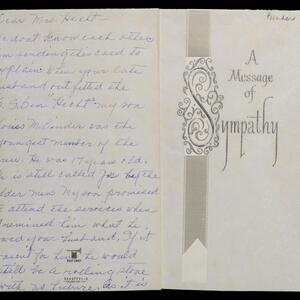 Dear Mrs. Hecht-
We dont know each other
am sending this card to
explain. When your late
husband out fitted the
S.S. "Ben Hecht" my son
Louis M. Binder was the
youngest member of the
crew. He was 17 years old.
He is still called Joe by the
older men. My son promised
to attend the services when
I remined him what he
owed your husband. If it
wasent for him he would
still be a rolling stone
with no future, as it is
Binder
A
Message
of
Sympathy